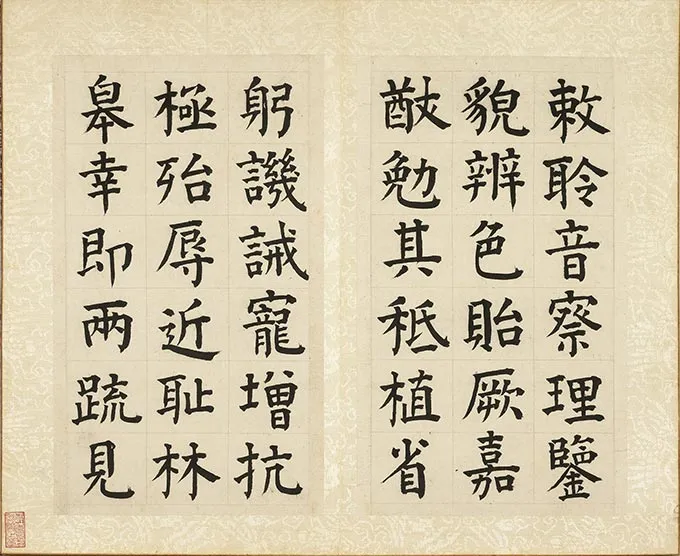 敕聆音察理鑒
貌辨色貽厥嘉
猷勉其秪植省
躬譏誡寵增抗
極殆辱近耻林
皋幸即兩䟽見